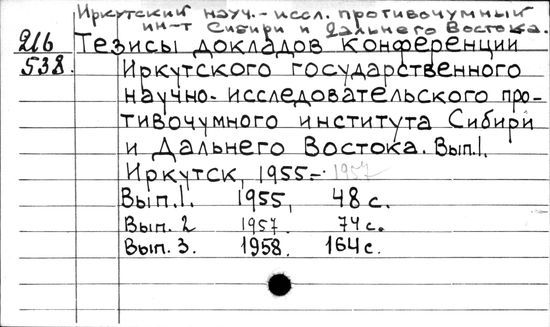 Иркутский науч.-иссл. противочумный
ин-т Сибири и Дальнего Востока.
216 Тезисы докладов конференции
538. Иркутского государственного
научно-исследовательского про-
тивочумного института Сибири
и Дальнего Востока. Вып.1.
Иркутск, 1955- 1957
Вып.1. 1955, 48 с.
Вып. 2 1957. 74 с.
Вып. 3. 1958. 164 с.